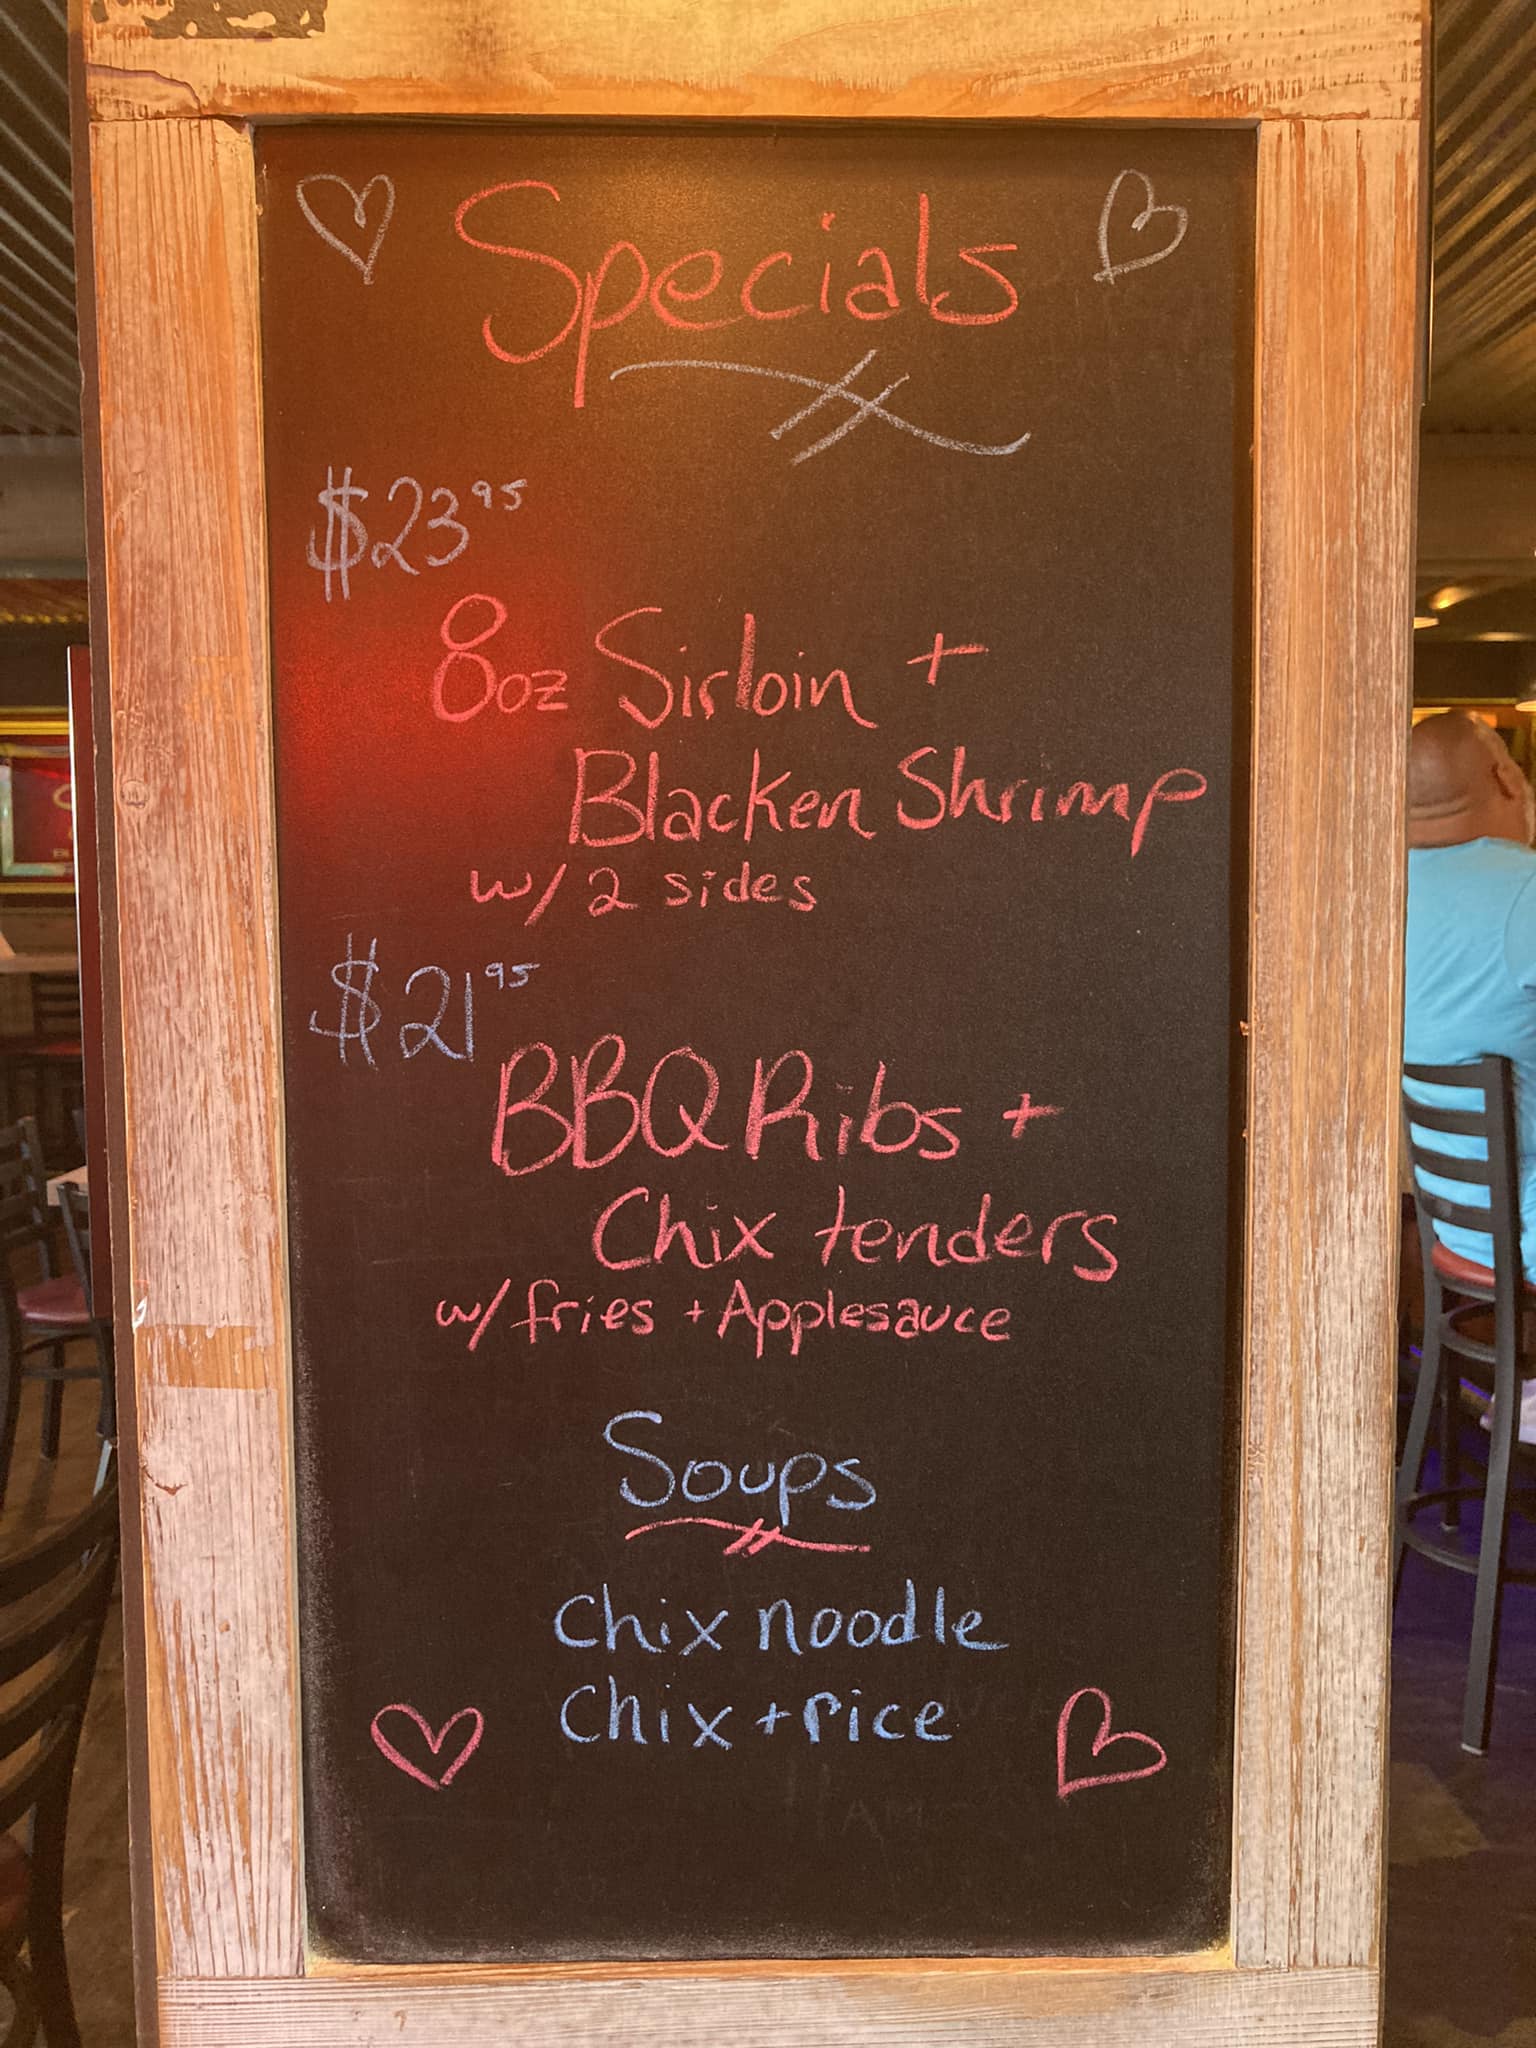 Specials
$23.95
8oz Sirloin +
Blacken Shrimp
w/ 2 sides
$21.95
BBQ Ribs +
Chix tenders
w/ fries + Applesauce
Soups
Chix noodle
Chix + rice